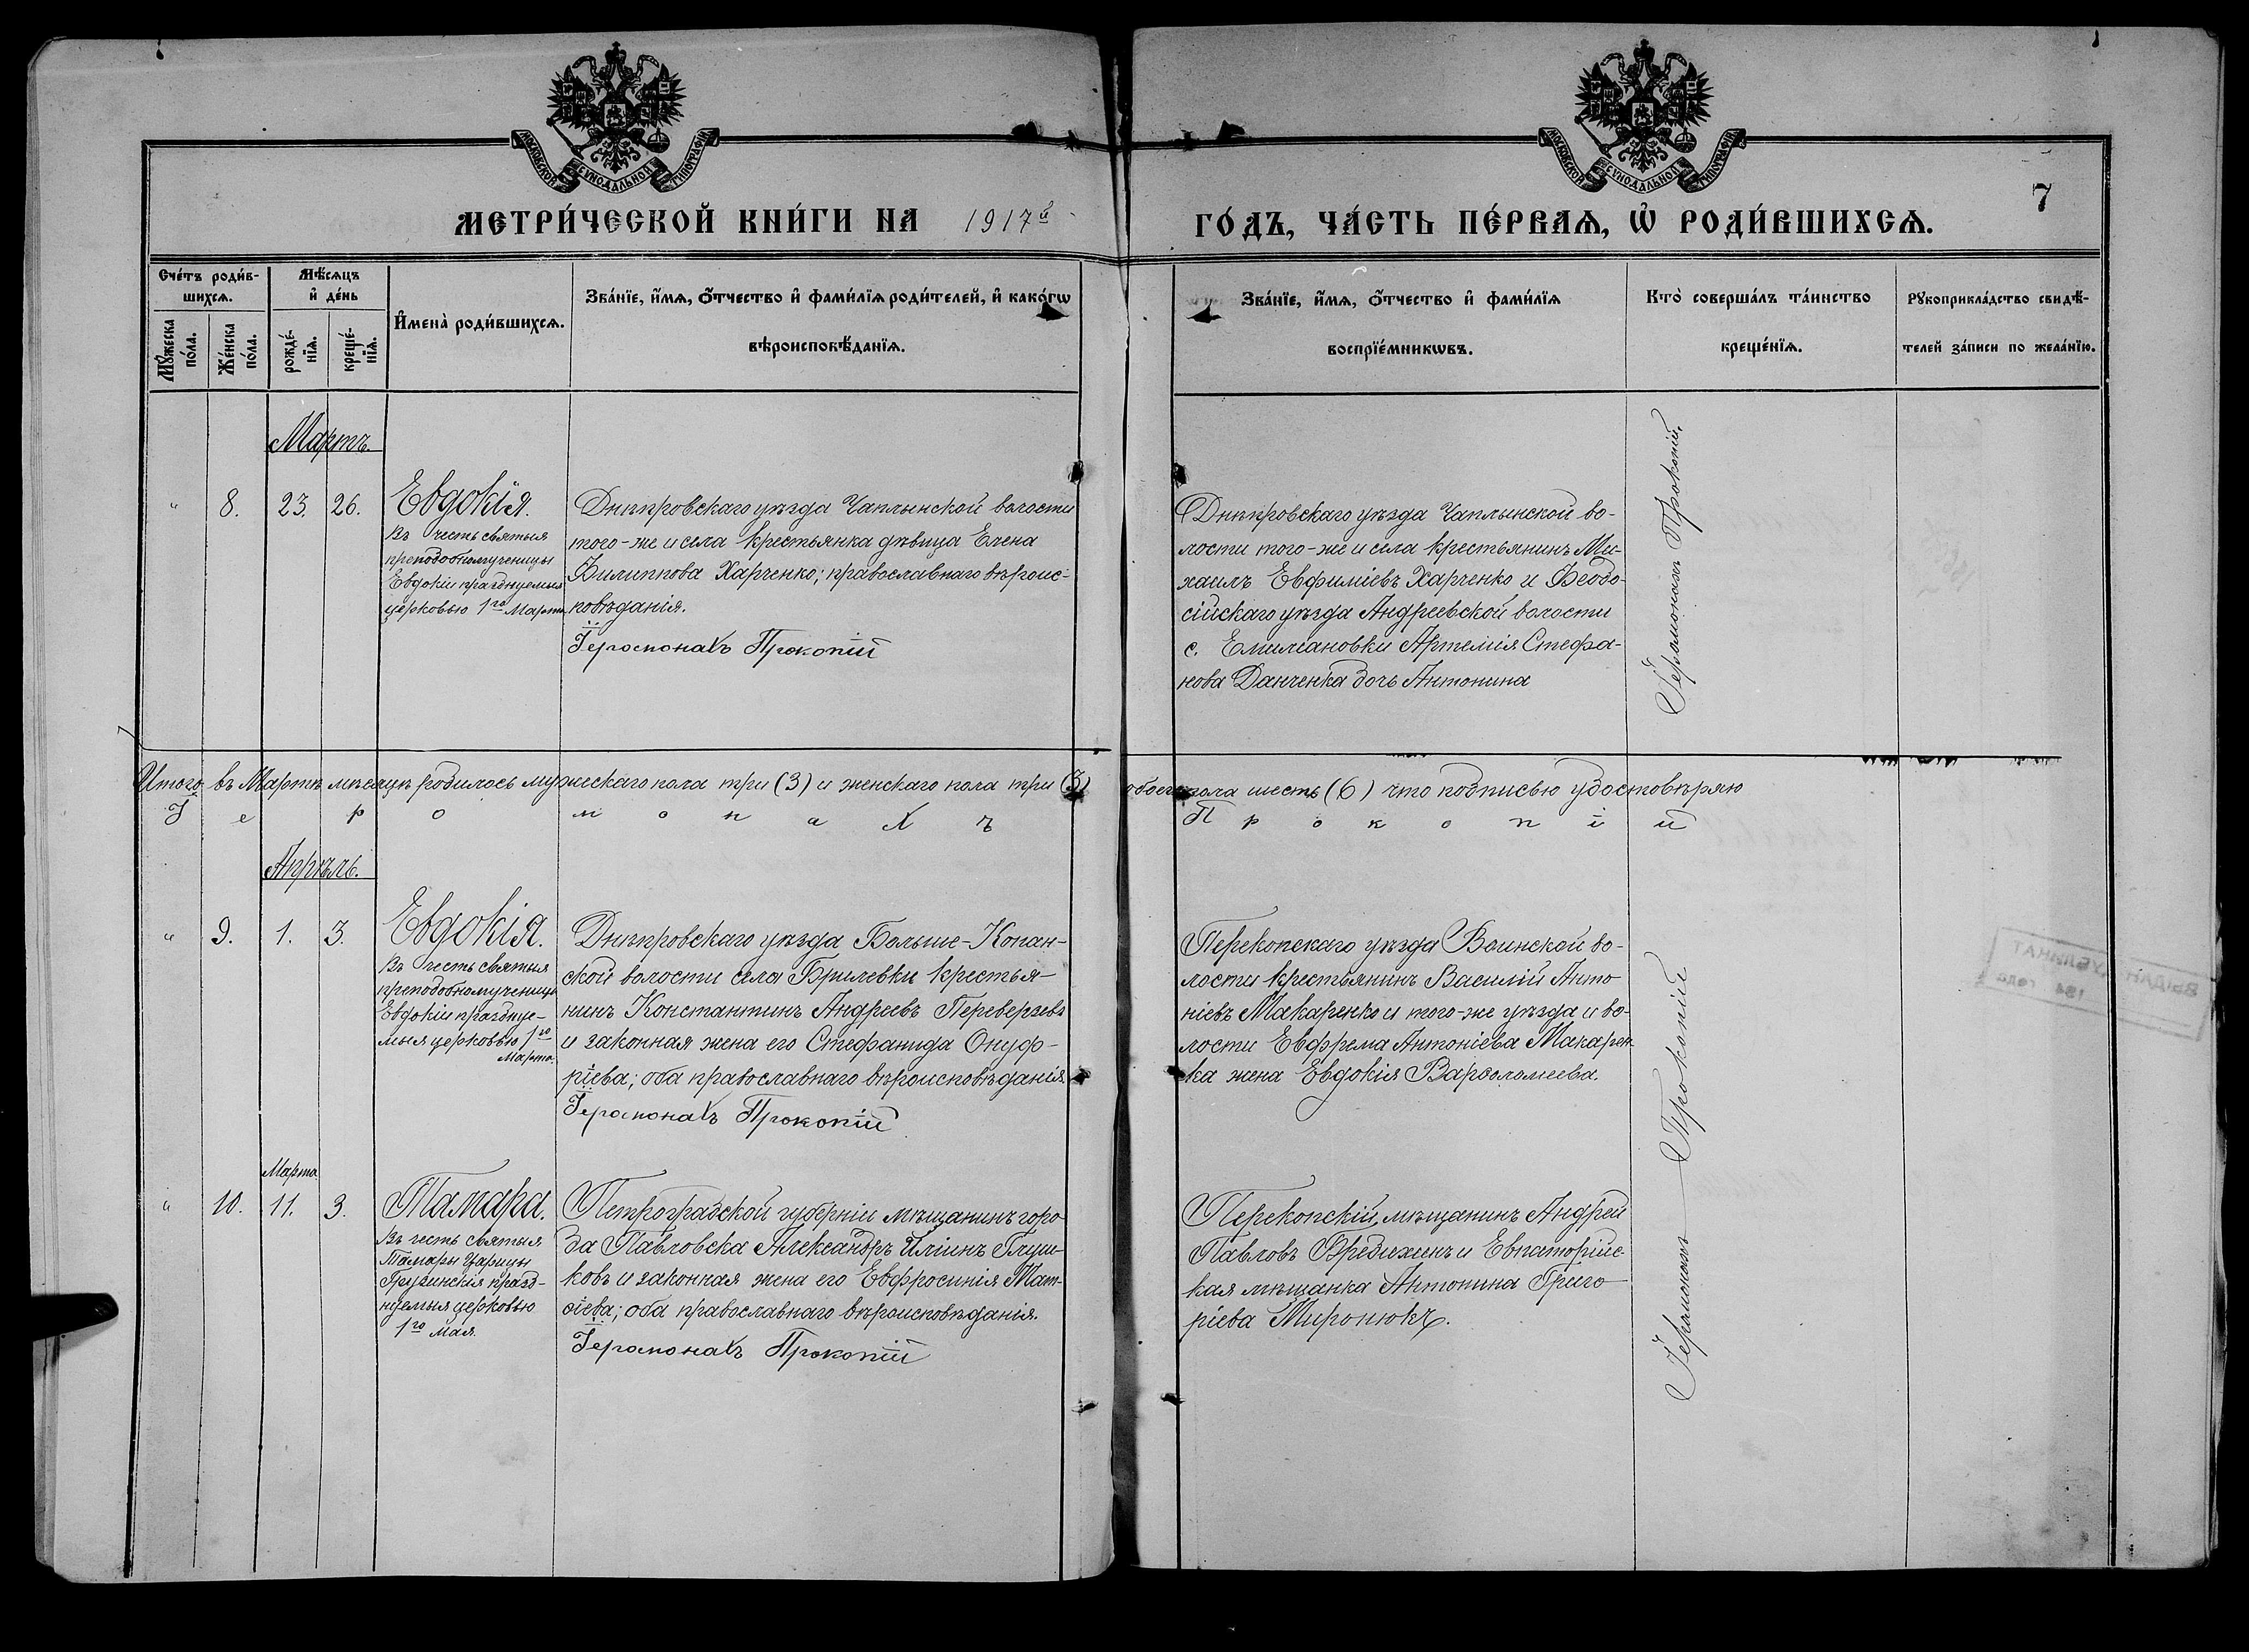 МОСКОВСКОЙ СѴНОДАЛЬНОЙ ТИПОГРАФІИ
МОСКОВСКОЙ СѴНОДАЛЬНОЙ ТИПОГРАФІИ
7
МЕТРИ́ЧЕСКОЙ КНИ́ГИ НА 1917й
ГО́ДЪ, ЧА́СТЬ ПЕ́РВАѦ, Ѡ҆ РОДИ́ВШИХСѦ.
Сче́тъ роди́в-
шихсѧ.
Мꙋ́жеска
по́ла.
Же́нска
по́ла.
Мѣ́сѧцъ
и҆ де́нь
рожде́-
нїѧ.
креще́-
нїѧ.
И҆мена̀ роди́вшихсѧ.
Зва́нїе, и҆́мѧ, ѻ҆́тчество и҆ фами́лїѧ роди́телей, и҆ како́гѡ
вѣроисповѣ́данїѧ.
Зва́нїе, и҆́мѧ, ѻ҆́тчество и҆ фами́лїѧ
воспрїе́мникѡвъ.
Кто̀ соверша́лъ та́инство
креще́нїѧ.
Рꙋкоприкла́дство свидѣ́-
телей за́писи по жела́нїю.
Мартъ.
" 8. 23. 26.
Евдокія.
Въ честь святыя
преподобномученицы
Евдокіи празднуемыя
церковью 1го Марта
Днѣпровскаго уѣзда Чаплынской волости
того-же и села крестьянка дѣвица Елена
Филиппова Харченко; православнаго вѣроис-
повѣданія.
Іеромонахъ Прокопій
Днѣпровскаго уѣзда Чаплынской во-
лости того-же и села крестьянинъ Ми-
хаилъ Евфиміевъ Харченко и Ѳеодо-
сійскаго уѣзда Андреевской волости
с. Емиліановки Артемія Стефа-
нова Данченка дочь Антонина
Іеромонахъ Прокопій.
Итого въ Мартѣ мѣсяцѣ родилось мужескаго пола три (3) и женскаго пола три (3) обоего пола шесть (6) что подписью удостовѣряю
Іеромонахъ Прокопій
Апрѣль.
" 9. 1. 3.
Евдокія.
Въ честь святыя
преподобномученицы
Евдокіи праздуе-
мыя церковью 1го
Марта.
Днѣпровскаго уѣзда Больше-Копан-
ской волости села Брилевки крестья-
нинъ Константинъ Андреевъ Переверзевъ
и законная жена его Стефанида Онуф-
ріева; оба православнаго вѣроисповѣданія
Іеромонахъ Прокопій
Перекопскаго уѣзда Воинской во-
лости крестьянинъ Василій Анто
ніевъ Макаренко и того-же уѣзда и во-
лости Евфрема Антоніева Макарен-
ка жена Евдокія Варѳоломеева.
Марта
" 10. 11. 3.
Тамара.
Въ честь святыя
Тамары Царицы
Грузинскія празд-
нуемыя церковью
1го Мая.
Петроградской губерніи мѣщанинъ горо
да Павловска Александръ Иліинъ Глуш-
ковъ и законная жена его Евфросинія Мат-
ѳіева; оба православнаго вѣроисповѣданія.
Іеромонахъ Прокопій
Перекопскій мѣщанинъ Андрей
Павловъ Вредихинъ и Евпаторійс-
кая мѣщанка Антонина Григо
ріева Миронюкъ.
Іеромонахъ Прокопій
ВЫДАН ДУБЛИКАТ
194 года